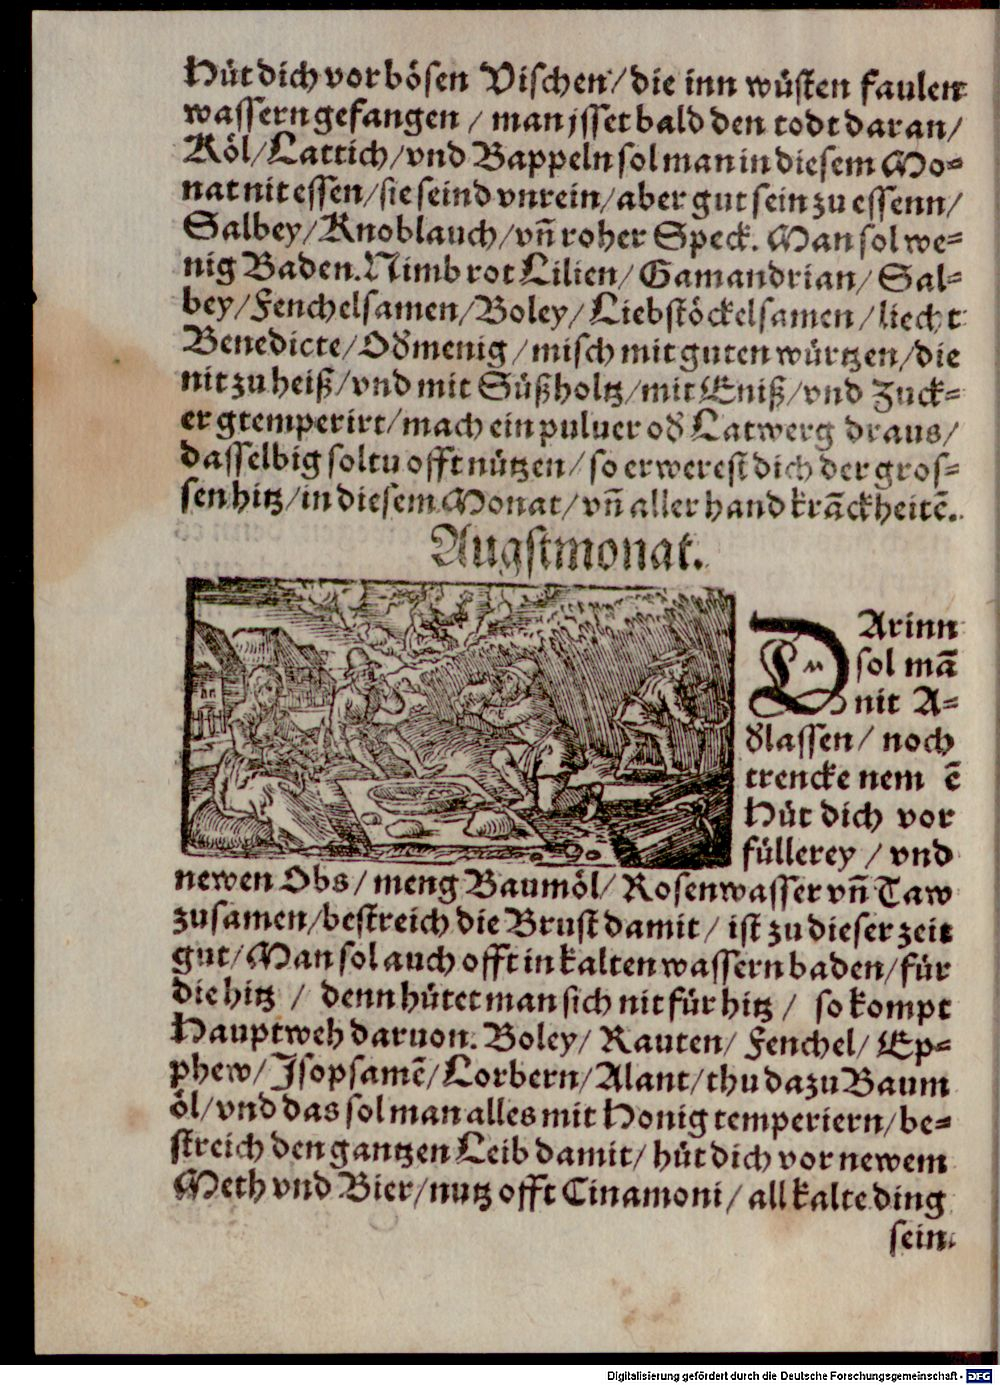 Hüt dich vor bösen Vischen/ die inn wüsten faulen
wassern gefangen / man jsset bald den todt daran/
Köl/ Lattich/ vnd Bappeln sol man in diesem Mo=
nat nit essen/ sie seind vnrein/ aber gut sein zu essenn/
Salbey/ Knoblauch/ vn̄ roher Speck. Man sol we=
nig Baden. Nimb rot Lilien/ Gamandrian/ Sal=
bey/ Fenchelsamen/ Boley/ Liebstöckelsamen/ liecht
Benedicte/ Odmenig / misch mit guten würtzen/ die
nit zu heiß/ vnd mit Süßholtz/ mit Eniß/ vnd Zuck=
er gtemperirt/ mach ein puluer od Latwerg draus/
dasselbig soltu offt nützen/ so erwerest dich der gros=
sen hitz/ in diesem Monat/ vn̄ aller hand krāckheitē.
Augstmonat.
DArinn
sol mā
nit A=
dlassen/ noch
trencke nemē
Hüt dich vor
füllerey / vnd
newen Obs/ meng Baumöl/ Rosenwasser vn̄ Taw
zusamen/ bestreich die Brust damit/ ist zu dieser zeit
gut/ Man sol auch offt in kalten wassern baden/ für
die hitz / denn hütet man sich nit für hitz / so kompt
Hauptweh daruon. Boley/ Rauten/ Fenchel/ Ep=
phew/ Isopsamē/ Lorbern/ Alant/ thu dazu Baum
öl/ vnd das sol man alles mit Honig temperiern/ be=
streich den gantzen Leib damit/ hüt dich vor newem
Meth vnd Bier/ nutz offt Cinamoni/ all kalte ding
sein
Digitalisierung gefördert durch die Deutsche Forschungsgemeinschaft - DFG